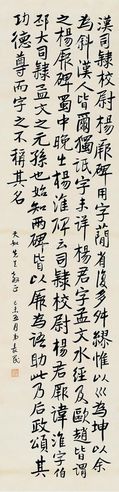 漢司隸校尉楊厥碑用字簡省復多舛繆惟以巛為坤以余
為斜漢人皆爾獨詆字未詳楊君字孟文水經及歐趙皆謂
之楊厥碑蜀中晚出楊淮碑云司隸校尉楊君厥諱淮字伯
邳大司隸孟文之元孫也始知兩碑皆以厥為語助此乃后政頌其
功德尊而字之不稱其名
先生